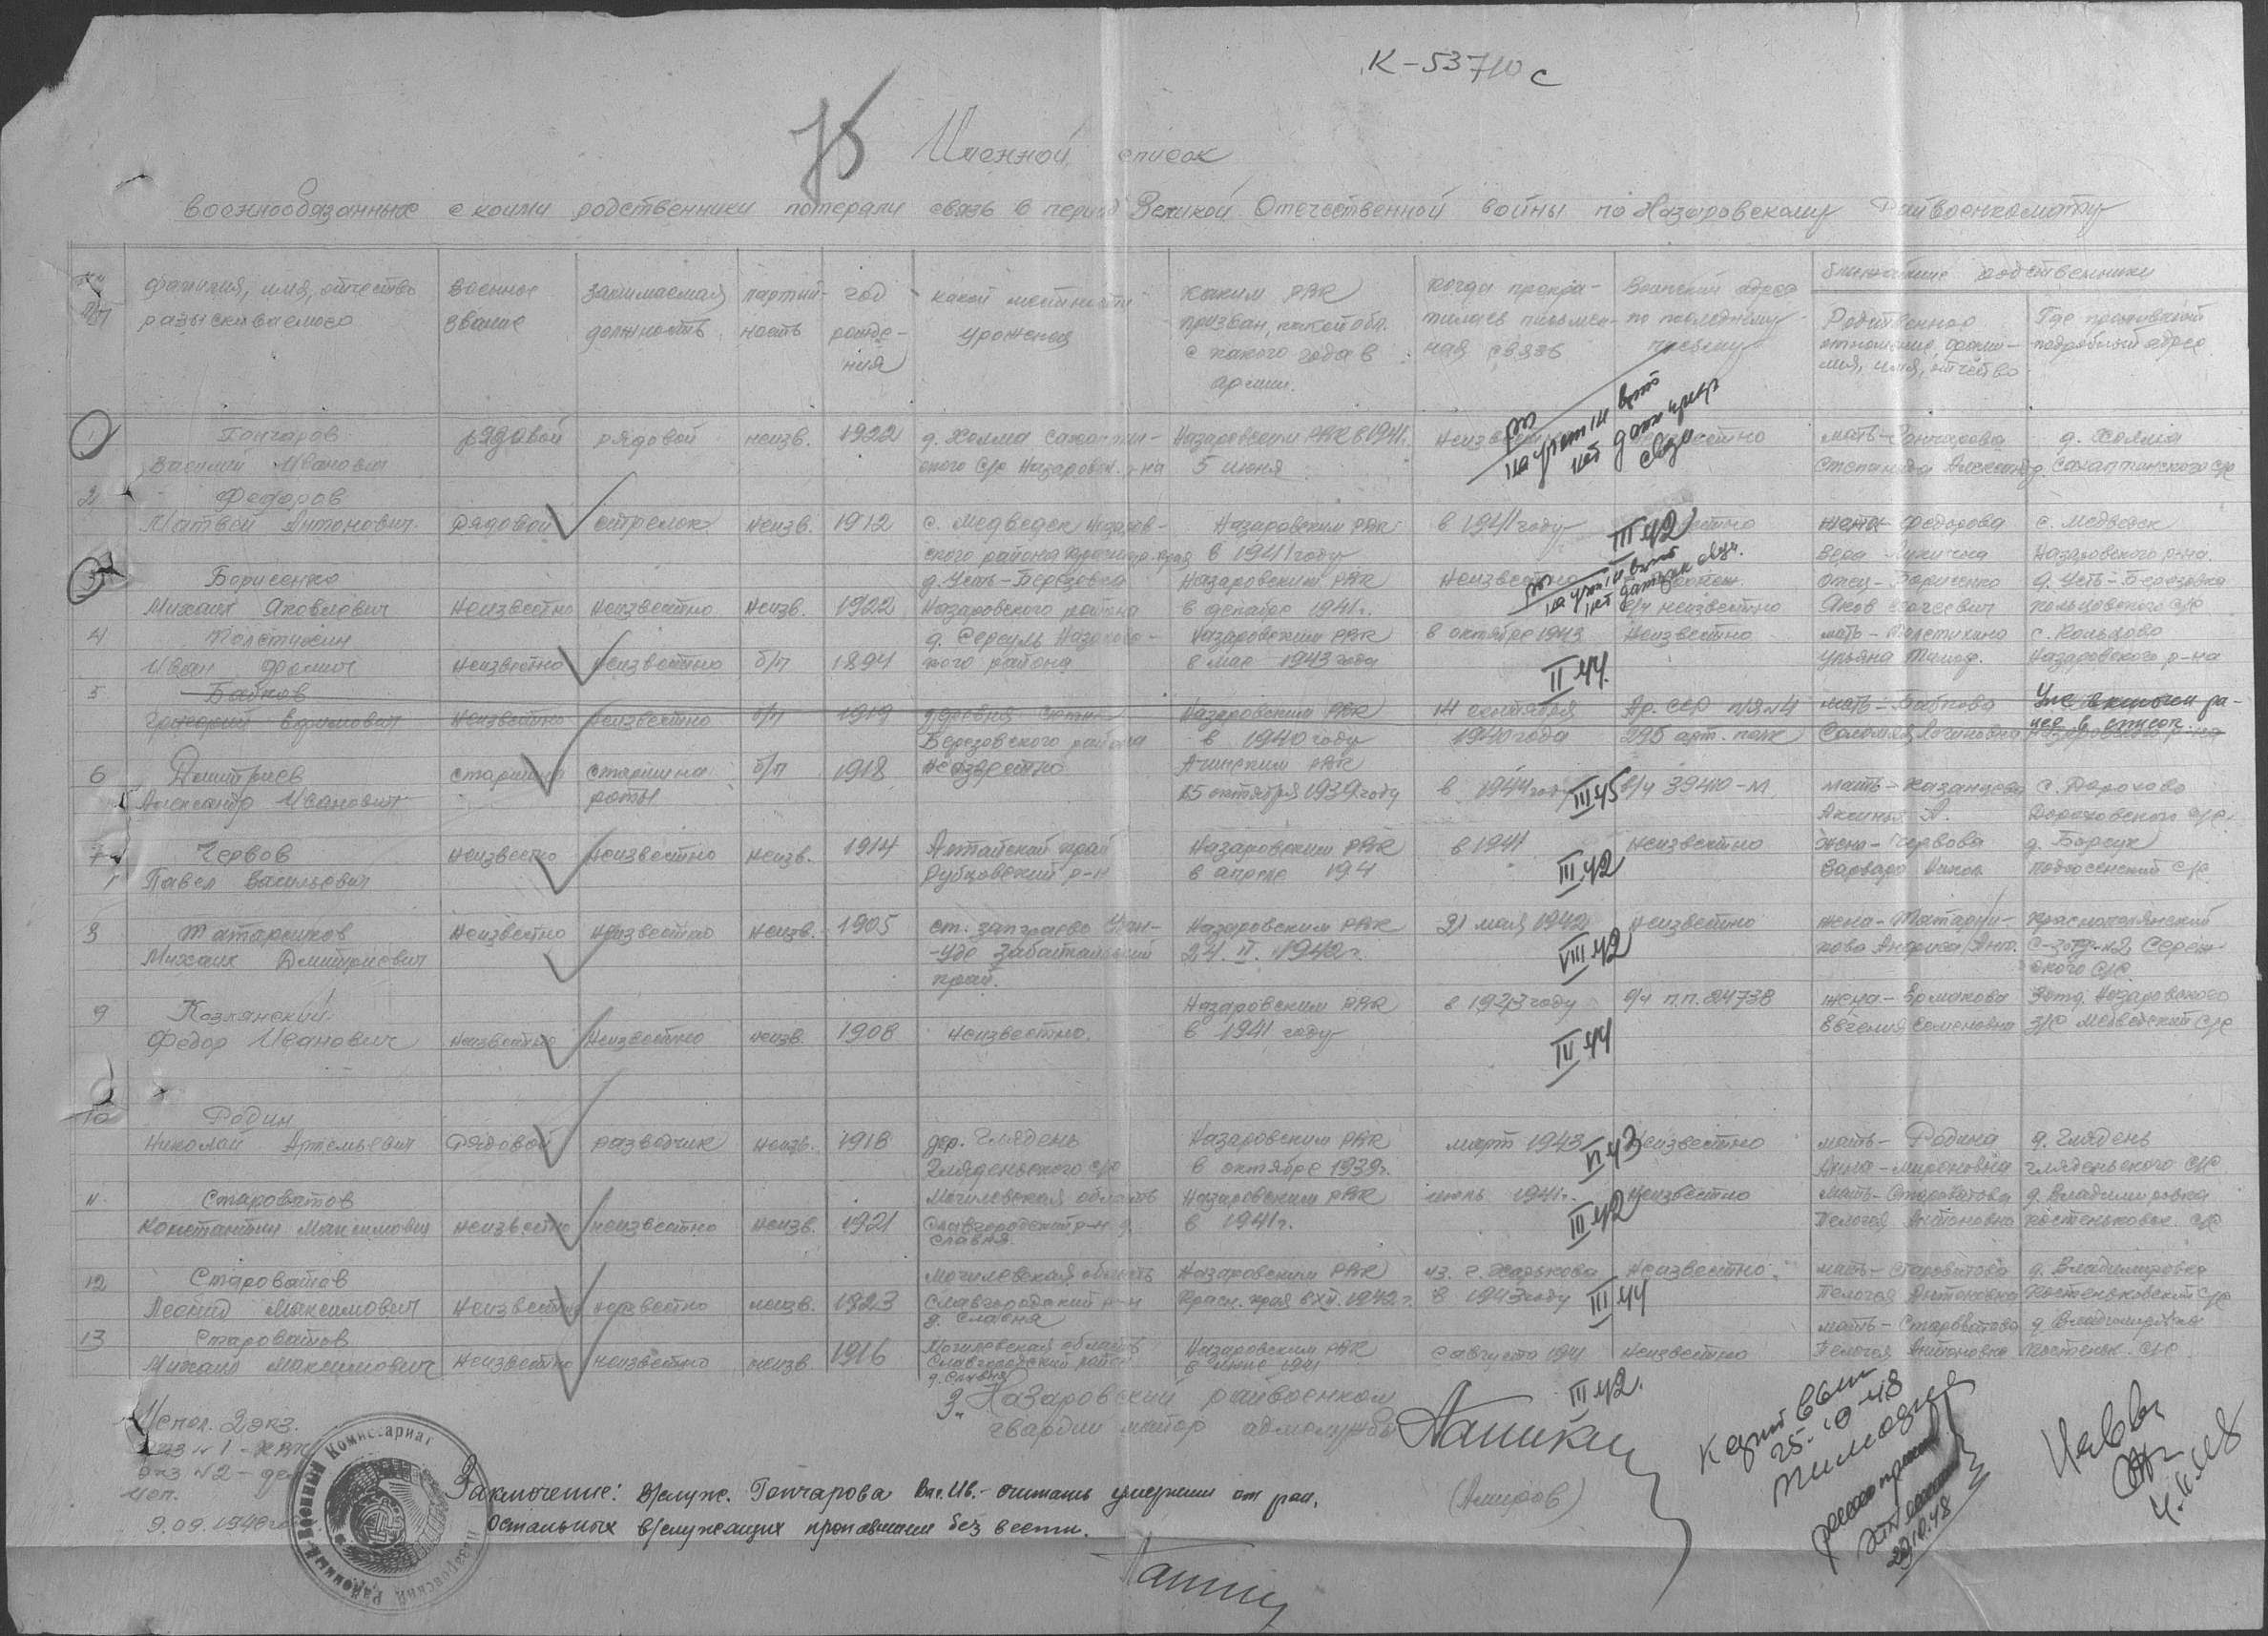 К-53710 с
75
Именной список
военнообязанных с коими родственники потеряли связь в период Великой Отечественной войны по Назаровскому Райвоенкомату
№№ п/п
фамилия, имя, отчество разыскиваемого
военное звание
занимаемая должность
партийность
год рождения
какой местности уроженец
каким РВК призван, какой обл. с какого года в армии.
когда прекратилась письменная связь
Воинский адрес по последнему письму
ближайшие родственники
Родственное отношение, фамилия, имя, отчество
Где проживают подробный адрес
1 Гончаров рядовой рядовой неизв. 1922 д. Холма Сахаптин- Назаровским РВК в 1941г. неизвестно мать-Гончарова д. Холма
Василий Иванович ского с/с Назаровск. р-на 5 июня Степанида Александ. Сахаптинского с/с
на учет III вто нет дат и прекр связи
2 Федоров
Матвей Антонович рядовой стрелок неизв. 1912 с. Медведск Назаров- Назаровским РВК в 1941 году III 42 жена-Федорова с. Медведск
ского района Краснояр. края в 1941 году Вера Лукинична Назаровского р-на.
3 Борисенко д. Усть-Березовка Назаровским РВК неизвестно отец-Борисенко д. Усть-Березовка
Михаил Яковлевич неизвестно неизвестно неизв. 1922 Назаровского района в декабре 1941г. в/ч неизвестно Яков кольцовского с/с
4 Толстихин д. Сереуль Назаровс- Назаровским РВК в октябре 1943 неизвестно мать-Толстихина с. Кольцово
Иван неизвестно неизвестно б/п 1894 кого района в мае 1943 года II 44. Ульяна Тимоф. Назаровского р-на
5 Бабков
Григорий Ефимович неизвестно неизвестно б/п 1919 деревня Назаровским РВК 14 сентября Ар. ССР п/я №4 мать-Бабкова Уже включен ра-
Березовского района в 1940 году 1940 года 295 арт. полк Соломея Логиновна нее в список.
6 Дмитриев старшина старшина б/п 1918 неизвестно Ачинским РВК
Александр Иванович роты 15 октября 1939 году в 1944 году III 45 в/ч 39410-м мать-Казанцева с. Дорохово
Аксинья А. Дороховского с/с.
7 Червов неизвестно неизвестно неизв. 1914 Алтайский край Назаровским РВК в 1941 неизвестно жена-Червова д. Барсук
Павел Васильевич Рубцовский р-н в апреле 194 III 42 Варвара Никол. подсосенский с/с
8 Татарников неизвестно неизвестно неизв. 1905 ст. заиграево Улан- Назаровским РВК 21 мая 1942 неизвестно жена-Татарни- Краснополянский
Михаил Дмитриевич -Удэ Забайкальский 24. II. 1942г. VIII 42 кова Анфиса Ант. с-з отд-№2 Сереж-
край. ского с/с
9 Козлянский Назаровским РВК в 1943 году в/ч п.п. 24738 жена-Ермакова 3 отд. Назаровского
Федор Иванович неизвестно неизвестно неизв. 1908 неизвестно. в 1941 году IV 44 Евгения Семеновна з/с Медведский с/с
10 Родин
Николай Артемьевич рядовой разводчик неизв. 1918 дер. Глядень Назаровским РВК март 1943 VI 43 неизвестно мать-Родина д. Глядень
Гляденьского с/с в октябре 1939г. Анна-Мироновна Гляденьского с/с
11. Староватов Могилевская область Назаровским РВК июль 1941г. неизвестно мать-Староватова д. Владимировка
Константин Максимович неизвестно неизвестно неизв. 1921 Славгородский р-н д. в 1941г. III 42 Пелагея Антоновна костеньковск. с/с
Славня
12 Староватов Могилевская область Назаровским РВК из г. Харькова неизвестно мать-Староватова д. Владимировка
Леонид Максимович неизвестно неизвестно неизв. 1923 Славгородский р-н Красн. края в XII. 1942г. в 1943 году III 44 Пелагея Антоновна Костеньковский с/с
д. Славня
13 Староватов Могилевская область Назаровским РВК мать-Староватова д. Владимировка
Михаил Максимович неизвестно неизвестно неизв 1916 Славгородский район в июне 1941 с августа 1941 неизвестно Пелагея Антоновна костеньк. с/с.
д. Славня
III 42.
З. Назаровский райвоенком
гвардии майор админслужбы
(Амиров)
Испол. 2 экз.
экз №1 - КВК
экз №2 - дел
исп.
9.09.1948 год
Районный Военный Комиссариат
Назаровский
Заключение: В/служ. Гончарова Вас. Ив. - считать умершим от ран,
остальных в/служащих пропавшими без вести.
25-10-48
29.10.48
4.11.48